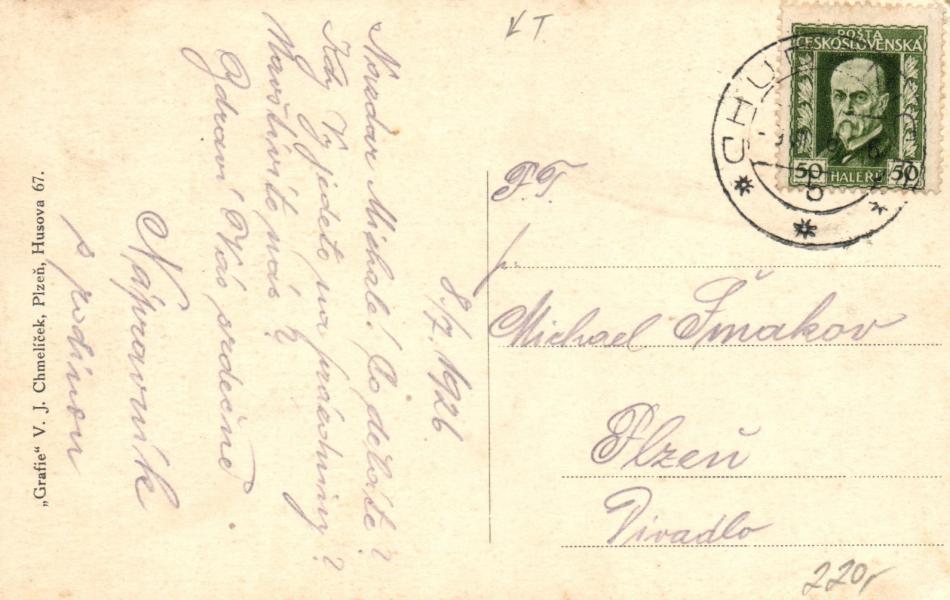 K T.
POŠTA
ČESKOSLOVENSKÁ
50 HALÉŘŮ 50
CHU
b
8./7. 1926
Nazdar Michale! Co děláte?
Kdy Vy jedete na prázdniny?
Navštívíte nás?
Zdraví Vás srdečně
Nápravník
s rodinou
P. T.
p.
Michael Šmakov
Plzeň
Divadlo
220,-
„Grafie“ V. J. Chmelíček, Plzeň, Husova 67.